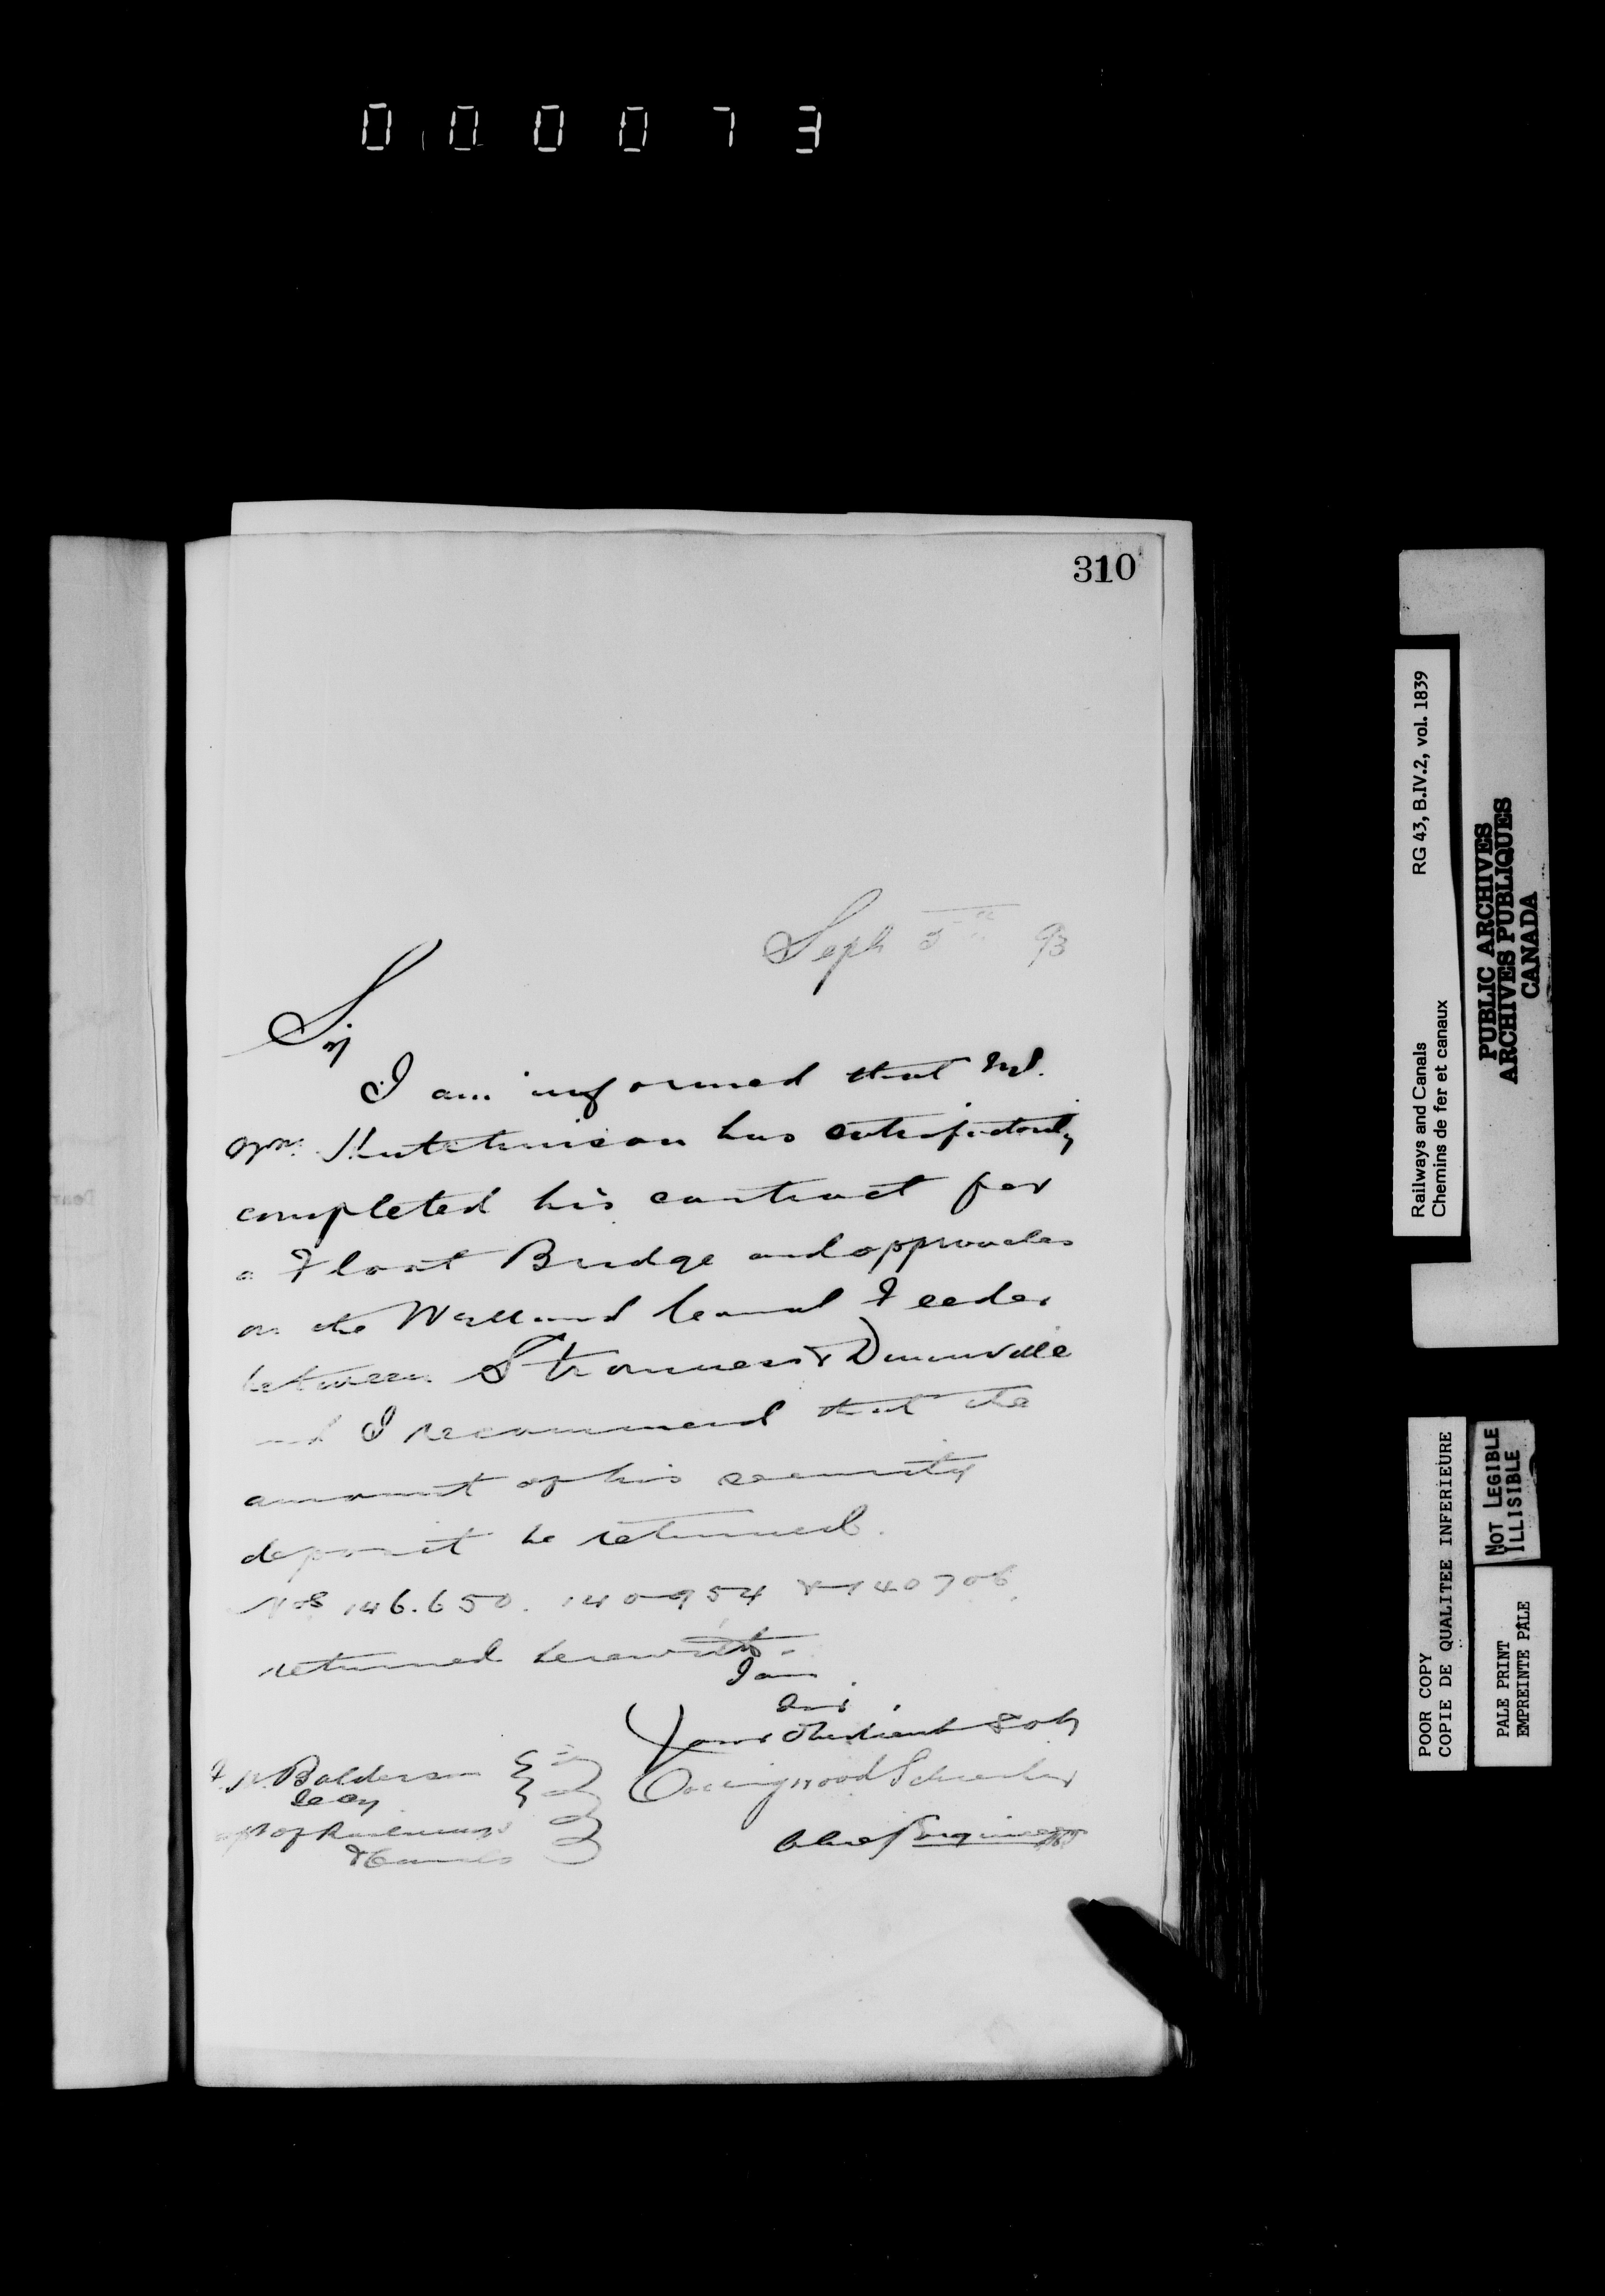 000073
310
Sept 5th 93
Sir
I am informed that Mr.
Wm. Hutchinson has satisfactorily
completed his contract for
a Float Bridge and approaches
on the Welland Canal Feeder
between Stromness & Dunnville
and I recommend that the
amount of his security
deposit be returned.
Nos 146.650. 140954 & 140706
returned herewith.
I am
Sir
Your obedient Sert
Collingwood Schreiber
Chief Engineer
Balderson
Secy
Dept of Railways
& Canals
Railways and Canals RG 43, B.IV.2, vol. 1839
Chemins de fer et canaux
PUBLIC ARCHIVES
ARCHIVES PUBLIQUES
CANADA
POOR COPY
COPIE DE QUALITEE INFERIEURE
NOT LEGIBLE
ILLISIBLE
PALE PRINT
EMPREINTE PÂLE